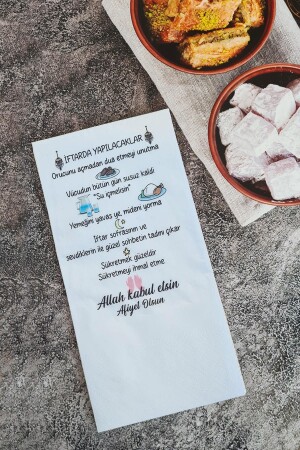 İFTARDA YAPILACAKLAR
Orucunu açmadan dua etmeyi unutma
Vücudun bütün gün susuz kaldı
"Su içmelisin"
Yemeğini yavaş ye, mideni yorma
İftar sofrasının ve
sevdiklerin ile güzel sohbetin tadını çıkar
Şükretmek güzeldir
Şükretmeyi ihmal etme
Allah kabul etsin
Afiyet Olsun